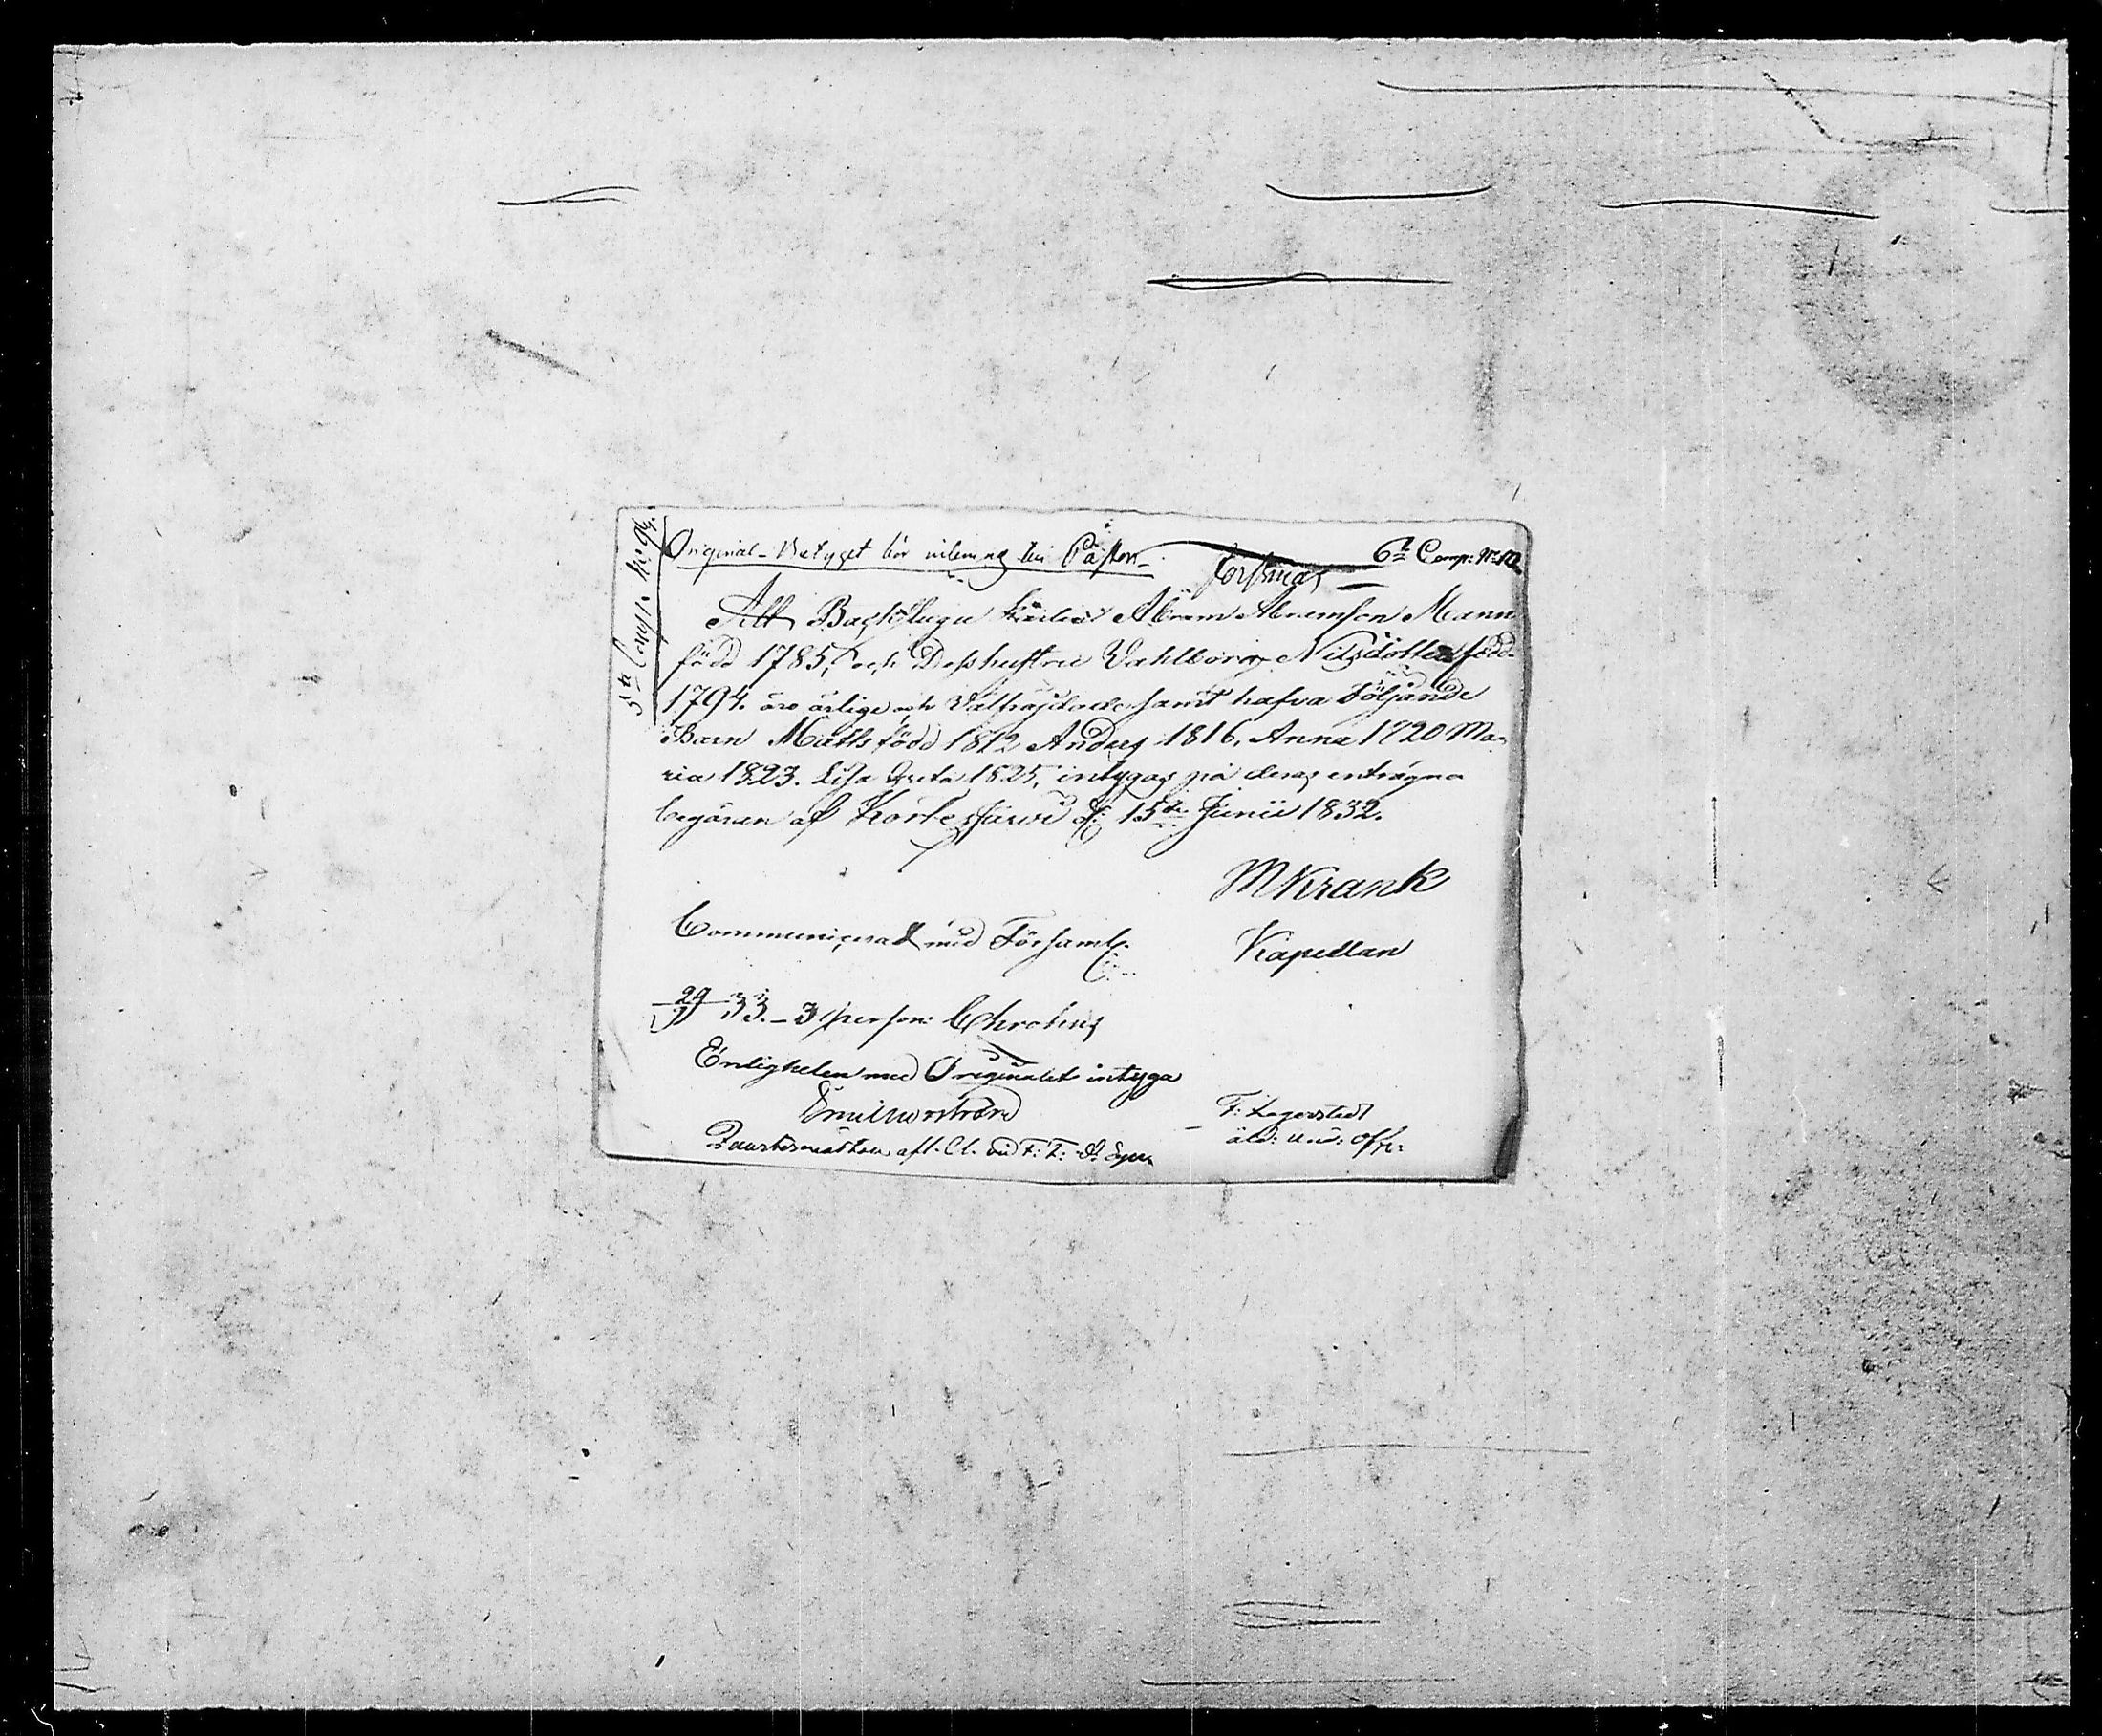 5te Comp: No 96.
Original-Betyget bör inlemnas till Pastor
6te Comp: No
Att Backstugu Karlen Abram Abramsson Mann
född 1785, och Dess hustru Vahlborg Nilsdotter född
1794. äro ärlige och Välfräjdade samt hafva Följande
Barn Matts född 1812 Anders 1816. Anna 1720 Ma-
ria 1823. Lisa Greta 1825, intygas på deras enträgna
begäran af Kortesjärvi d: 15de Junii 1832.
M Krank
Kapellan
Communicerat med Församl.
29 33. - 3 person:
Enligheten med Originalet intyga
F: Lagerstedt
äld: und: offi: